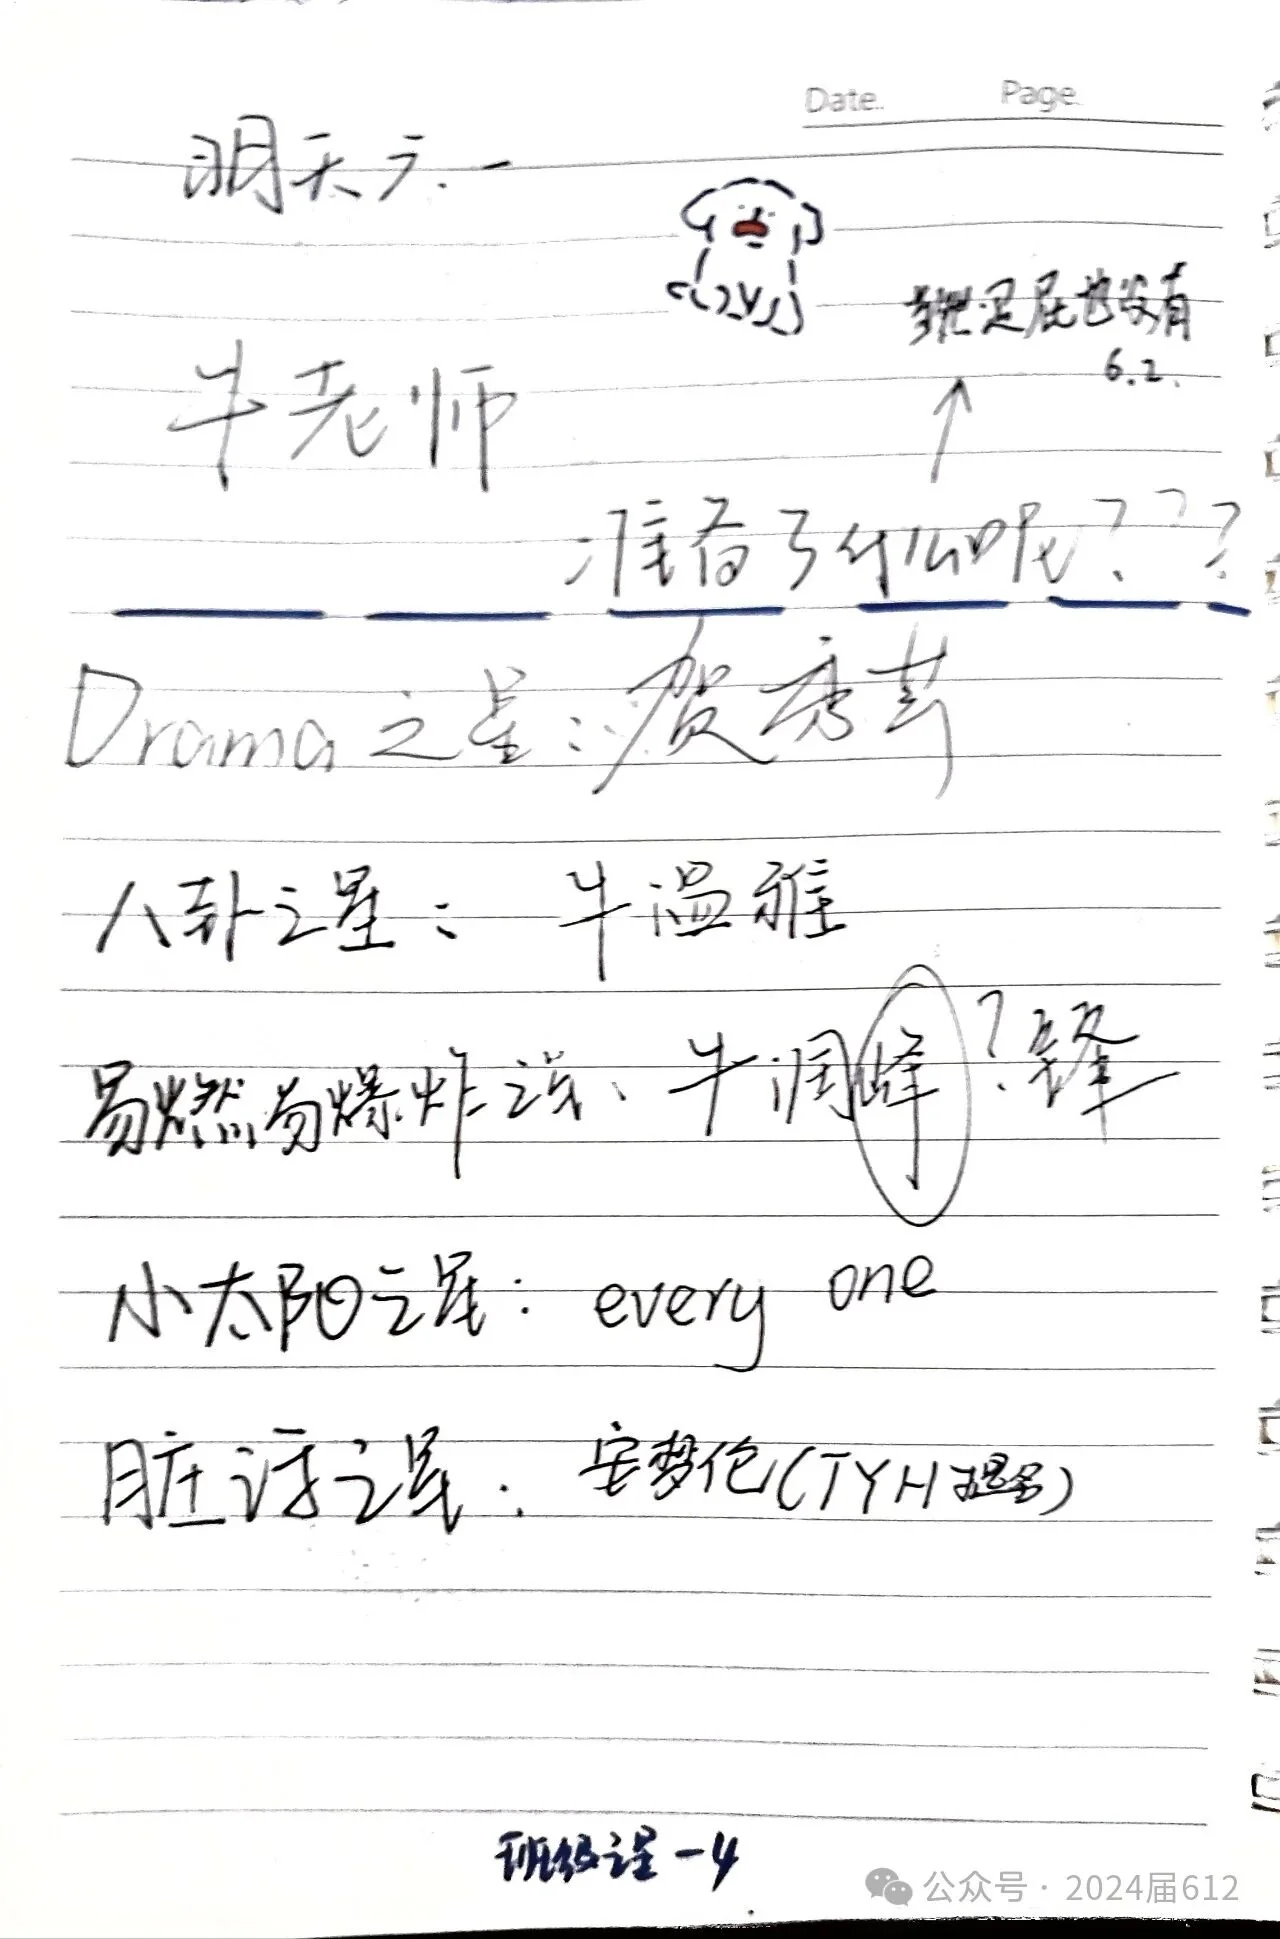 Date. Page.
明天六一
是屁也没有
6.2.
牛老师
准备了什么呢???
Drama之星:贺秀
八卦之星: 牛温雅
易燃易爆炸之星: 牛润峰?锋
小太阳之星: every one
脏话之星: 安梦伦(TYH提名)
班级之星-4
公众号·2024届612